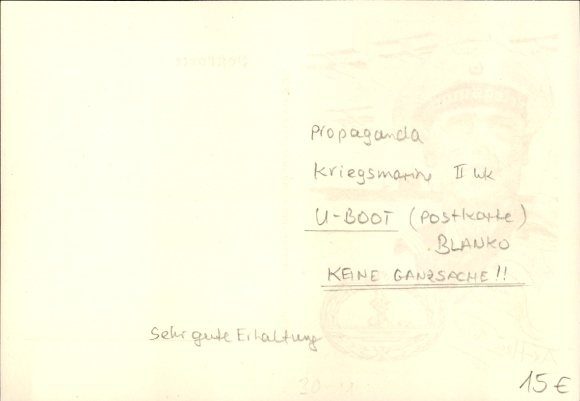 Propaganda
Kriegsmarine II WK
U-BOOT (Postkarte)
BLANKO
KEINE GANZSACHE!!
Sehr gute Erhaltung
15 €